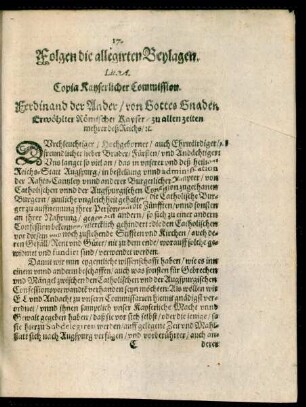 17.
Folgen die allegirten Beylagen.
Lit. A.
Copia Kayserlicher Commission.
Ferdinand der Ander / von Gottes Gnaden
Erwöhlter Römischer Kayser / zu allen zeiten
mehrer deß Reichs / ꝛc.
DUrchleuchtiger / Hochgeborner / auch Ehrwürdiger /
freundtlicher lieber Bruder / Fürsten / und Andächtiger:
Uns langet für vnd an / das in vnserer vnd deß heil:
Reichs-Statt Augspurg / in bestellung vnnd administration
der Rahts-Aempter vnnd anderer Burgerlicher
Catholischen vnd der Augspurgischen Confession zugethanen
Burgern / gleichheit gehalten / die Catholische Bur-
ger zu auffnemmung ihrer Personen die Zünfften / vnnd sonsten
an ihrer Nahrung / gegen andern / so sich zu einer andern
Confession bekennen / gehindert / den Catholischen
vor diesem noch zustehende Stifften vnd Kirchen / auch de-
ren Gefäll / Rent vnd Güter / nit zu dem ende / worauff solche ge-
widmet vnd fundirt sind / verwendet werden.
Damit wir nun eygentliche wissenschafft haben / wie es mit
einem vnnd anderm beschaffen / auch was sonsten für Gebrechen
vnd Mängel zwischen den Catholischen vnd der Augspurgischen
Confessionsverwandten verhanden seyn möchten: Als wöllen wir
E L vnd Andacht zu vnsern Commissarien hiemit gnädigst ver-
ordnet / vnnd ihnen samptlich vnser Kayserliche Macht vnnd
Gewalt gegeben haben / daß sie vor sich selbst / oder die jenige / so
sie hierzu Subdelegiren werden / auff gelegene Zeit vnd Mahl-
statt sich nach Augspurg verfügen / vnd vorberührter / auch an-
C
derer